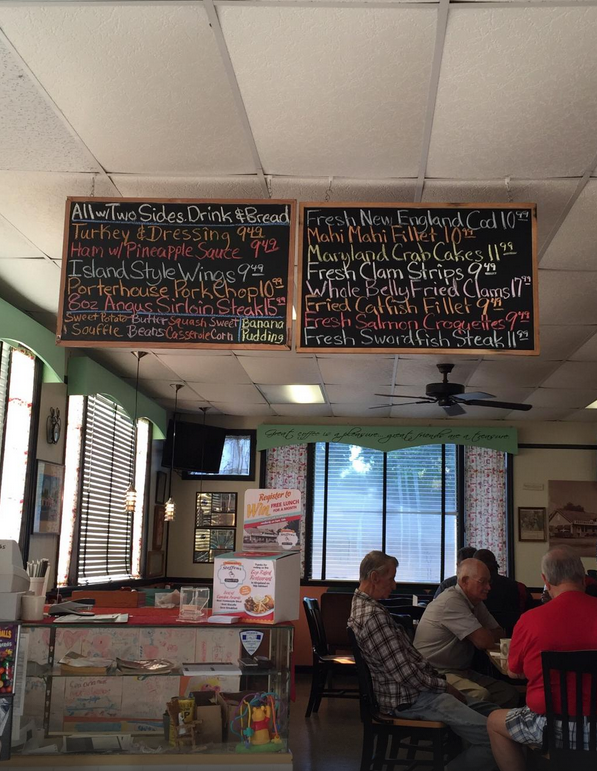 All w/Two Sides, Drink & Bread
Turkey & Dressing 9.49
Ham w/Pineapple Sauce 9.49
Island Style Wings 9.49
Porterhouse Pork Chop 10.99
8oz Angus Sirloin Steak 15.99
Sweet Potato Butter Squash Sweet
Souffle Beans Casserole Corn
Banana
Pudding
Fresh New England Cod 10.99
Mahi Mahi Fillet 10.99
Maryland Crab Cakes 11.99
Fresh Clam Strips 9.49
Whole Belly Fried Clams 17.49
Fried Catfish Fillet 9.49
Fresh Salmon Croquettes 9.49
Fresh Swordfish Steak 11.99
Great coffee is a pleasure, great friends are a treasure
Register to
Win FREE LUNCH
FOR A MONTH